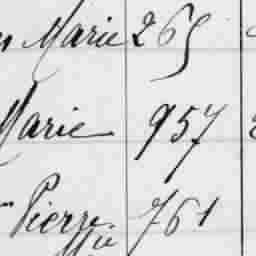 Marie 265
Marie 957
Pierre 761